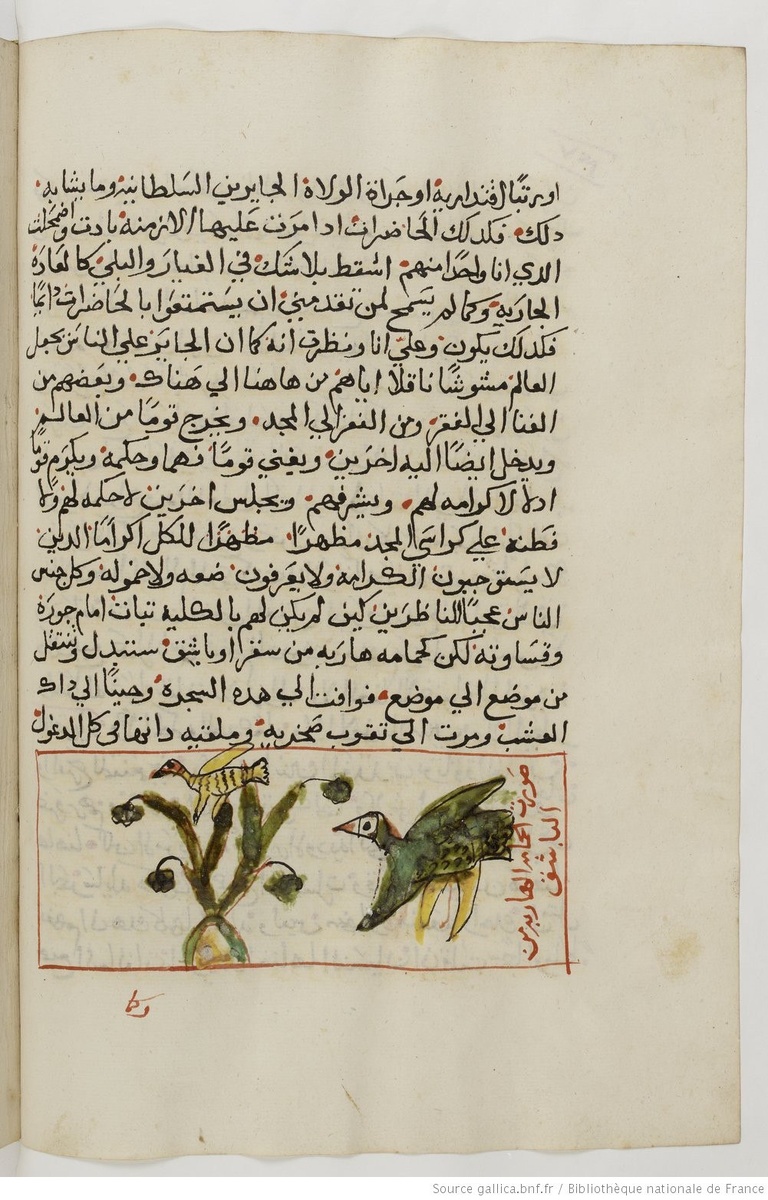 او برتبًا اقتداريه او جراة الولاة الجايرين السلطانيه وما يشابه
دلك فلدلك الحاضرات ادا مرت عليها الازمنه بادت واضمحلت
الدي انا واحدًا منهم اسقط بلا شك في الغبار والبلي كالعادة
الجاريه وكما لم يسمح لمن تقدمني ان يستمتعوا بالحاضرات دايمًا
فلدلك يكون وعلي انا ونظرت انه كما ان الجايز علي الناس يجعل
العالم مشوشًا ناقلا اياهم من هاهنا الي هناك وبعضهم من
الغنا الي الفقر ومن الفقر الي المجد ويخرج قومًا من العالم
ويدخل ايضًا اليه اخرين ويغني قومًا فهما وحكمة ويكرم قومًا
ادلا لا كرامه لهم ويشرفهم ويجلس اخرين لا حكمه لهم ولا
فطنه علي كراسي المجد مظهرًا مظهرًا للكل اكرامًا الدين
لا يستوجبون الكرامه ولا يعرفون ضعه ولا خموله وكل جنس
الناس عجبًا للناظرين كيف لم يكن لهم بالكلية تبات امام جورة
وقساوته لكن كحمامه هاربه من سقر او باشق ستتبدل وتنتقل
من موضع الي موضع فوافت الي هده الشجرة وحينًا الي داك
العشب ومرت الي تقوب صخريه وملقيه داتها في كل الدغول
صورت الحمامه الهاربه من
الباشق
وكما
Source gallica.bnf.fr / Bibliothèque nationale de France